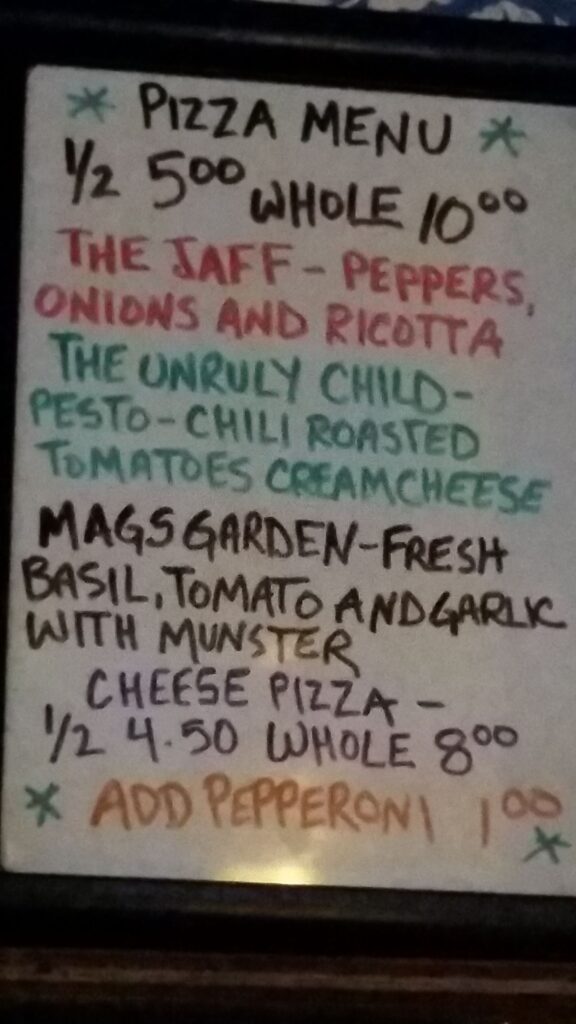 * PIZZA MENU *
1/2 500 WHOLE 1000
THE JAFF - PEPPERS,
ONIONS AND RICOTTA
THE UNRULY CHILD-
PESTO-CHILI ROASTED
TOMATOES CREAMCHEESE
MAGS GARDEN-FRESH
BASIL, TOMATO AND GARLIC
WITH MUNSTER
CHEESE PIZZA -
1/2 4.50 WHOLE 800
* ADD PEPPERONI 100 *